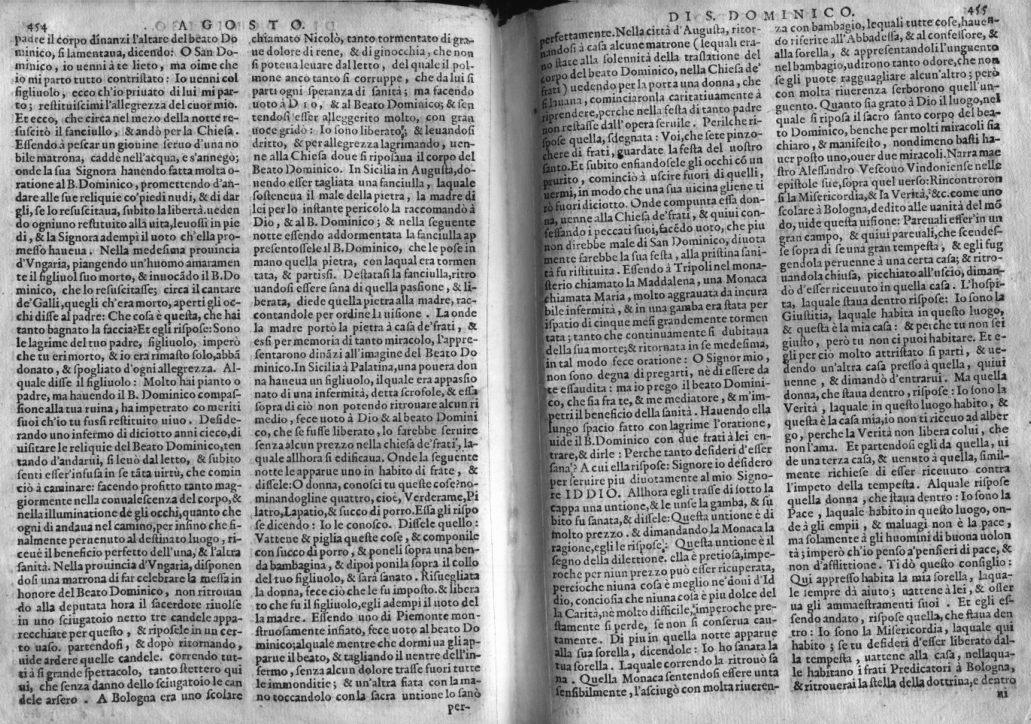 454
AGOSTO.
padre il corpo dinanzi l'altare del beato Do
minico, si lamentaua, dicendo: O San Do-
minico, io uenni à te lieto, ma oime che
io mi parto tutto contristato: Io uenni col
figliuolo, ecco ch'io priuato di lui mi par-
to; restituiscimi l'allegrezza del cuor mio.
Et ecco, che circa nel mezo della notte re-
suscitò il fanciullo, & andò per la Chiesa.
Essendo à pescar un giouine seruo d'una no
bile matrona, cadde nell'acqua, e s'annegò;
onde la sua Signora hauendo fatta molta o-
ratione al B.Dominico, promettendo d'an-
dare alle sue reliquie co'piedi nudi, & di dar
gli, se lo resuscitaua, subito la libertà.ueden
do ogniuno restituito alla uita, leuossi in pie
di, & la Signora adempi il uoto ch'ella pro-
messo haueua. Nella medesima prouincia
d'Vngaria, piangendo un'huomo amaramen
te il figliuol suo morto, & inuocādo il B.Do
minico, che lo resuscitasse; circa il cantare
de'Galli, quegli ch'era morto, aperti gli oc-
chi disse al padre: Che cosa è questa, che hai
tanto bagnato la faccia?Et egli rispose:Sono
le lagrime del tuo padre, figliuolo, imperò
che tu eri morto, & io era rimasto solo,abbā
donato, & spogliato d'ogni allegrezza. Al-
quale disse il figliuolo: Molto hai pianto o
padre, ma hauendo il B. Dominico compas-
sione alla tua ruina, ha impetrato co meriti
suoi ch'io tu fussi restituito uiuo. Deside-
rando uno infermo di diciotto anni cieco, di
uisitare le reliquie del Beato Dominico,ten
tando d'andarui, si leuò dal letto, & subito
sentì esser'infusa in se tāta uirtù, che comin
ciò à caminare: facendo profitto tanto mag-
giormente nella conualescenza del corpo,&
nella illuminatione de gli occhi, quanto che
ogni di andaua nel camino, per insino che fi-
nalmente peruenuto al destinato luogo, ri-
ceuè il beneficio perfetto dell'una, & l'altra
sanità. Nella prouincia d'Vngaria, disponen
dosi una matrona di far celebrare la messa in
honore del Beato Dominico, non ritrouan
do alla deputata hora il sacerdote riuolse
in uno sciugatoio netto tre candele appa-
recchiate per questo, & ripose le in un cer-
to uaso. partendosi, & dopò ritornando,
uide ardere quelle candele. correndo tut-
ti à si grande spettacolo, tanto stettero qui
ui, che senza danno dello sciugatoio le can
dele arsero. A Bologna era uno scolare
chiamato Nicolò, tanto tormentato di gra-
ue dolore di rene, & di ginocchia, che non
si poteua leuare dal letto, del quale il pol-
mone anco tanto si corruppe, che da lui si
partì ogni speranza di sanità; ma facendo
uoto à DIO, & al Beato Dominico; & sen
tendosi esser alleggerito molto, con gran
uoce gridò: Io sono liberato; & leuandosi
dritto, & per allegrezza lagrimando, uen-
ne alla Chiesa doue si riposaua il corpo del
Beato Dominico. In Sicilia in Augusta, do-
uendo esser tagliata una fanciulla, laquale
sosteneua il male della pietra, la madre di
lei per lo instante pericolo la raccomandò à
Dio, & al B. Dominico; & nella seguente
notte essendo addormentata la fanciulla ap
presentossele il B.Dominico, che le pose in
mano quella pietra, con laqual era tormen
tata, & partissi. Destatasi la fanciulla, ritro
uandosi essere sana di quella passione, & li-
berata, diede quella pietra alla madre, rac-
contandole per ordine la uisione. La onde
la madre portò la pietra à casa de'frati, &
essi per memoria di tanto miracolo, l'appre-
sentarono dināzi all'imagine del Beato Do
minico.In Sicilia à Palatina, una pouera don
na haueua un figliuolo, il quale era appassio
nato di una infermità, detta scrofole, & essa
sopra di ciò non potendo ritrouare alcun ri
medio, fece uoto à Dio & al beato Domini
co, che se fusse liberato, lo farebbe seruire
senza alcun prezzo nella chiesa de'frati, la-
quale allhora si edificaua. Onde la seguente
notte le apparue uno in habito di frate, &
dissele: O donna, conosci tu queste cose?no-
minandogline quattro, cioè, Verderame,Pi
latro, Lapatio, & succo di porro.Essa gli rispo
se dicendo: Io le conosco. Dissele quello:
Vattene & piglia queste cose, & componile
con succo di porro, & poneli sopra una ben-
da bambagina, & dipoi ponila sopra il collo
del tuo figliuolo, & sarà sanato. Risuegliata
la donna, fece ciò che le fu imposto. & libera
to che fu il figliuolo, egli adempi il uoto del
la madre. Essendo uno di Piemonte mon-
struosamente infiato, fece uoto al beato Do
minico; alquale mentre che dormiua gli ap-
parue il beato, & tagliando il uentre dell'in-
fermo, senza alcun dolore trasse fuori tutte
le immonditie; & un'altra fiata con la ma-
no toccandolo con la sacra untione lo sanò
per-
DI S. DOMINICO.
455
perfettamente. Nella città d'Augusta, ritor-
nandosi à casa alcune matrone (lequali era-
no state alla solennità della traslatione del
corpo del beato Dominico, nella Chiesa de'
frati) uedendo per la porta una donna, che
filauana, cominciaronla caritatiuamente à
riprendere, perche nella festa di tanto padre
non restasse dall'opera seruile. Perilche ri-
spose quella, sdegnata: Voi, che sete pinzo-
chere di frati, guardate la festa del uostro
santo. Et subito enfiandosele gli occhi cō un
prurito, cominciò à uscire fuori di quelli,
uermi, in modo che una sua uicina gliene ti
rò fuori diciotto. Onde compunta essa don-
na, uenne alla Chiesa de'frati, & quiui con-
fessando i peccati suoi, facēdo uoto, che piu
non direbbe male di San Dominico, diuota
mente farebbe la sua festa, alla pristina sani-
tà fu ristituita. Essendo à Tripoli nel mona-
sterio chiamato la Maddalena, una Monaca
chiamata Maria, molto aggrauata da incura
bile infermità, & in una gamba era stata per
ispatio di cinque mesi grandemente tormen
tata; tanto che continuamente si dubitaua
della sua morte; & ritornata in se medesima,
in tal modo fece oratione: O Signor mio,
non sono degna di pregarti, nè di essere da
te essaudita: ma io prego il beato Domini-
co, che sia fra te, & me mediatore, & m'im-
petri il beneficio della sanità. Hauendo ella
lungo spacio fatto con lagrime l'oratione,
uide il B.Dominico con due frati à lei en-
trare, & dirle: Perche tanto desideri d'esser
sana? A cui ella rispose: Signore io desidero
per seruire piu diuotamente al mio Signo-
re IDDIO. Allhora egli trasse di sotto la
cappa una untione, & le unse la gamba, & su
bito fu sanata, & dissele: Questa untione è di
molto prezzo. & dimandando la Monaca la
ragione, egli le rispose: Questa untione è il
segno della dilettione. ella è pretiosa, impe-
roche per niun prezzo può esser ricuperata,
percioche niuna cosa è meglio ne'doni d'Id
dio, conciosia che niuna cosa è piu dolce del
la Carità, nè molto difficile, imperoche pre-
stamente si perde, se non si conserua cau-
tamente. Di piu in quella notte apparue
alla sua sorella, dicendole: Io ho sanata la
tua sorella. Laquale correndo la ritrouò sa
na. Quella Monaca sentendosi essere unta
sensibilmente, l'asciugò con molta riueren-
za con bambagio, lequali tutte cose, hauen-
do riferite all'Abbadessa, & al confessore, &
alla sorella, & appresentandoli l'unguento
nel bambagio, udirono tanto odore, che non
se gli puote ragguagliare alcun'altro; però
con molta riuerenza serborono quell'un-
guento. Quanto sia grato à Dio il luogo, nel
quale si riposa il sacro santo corpo del bea-
to Dominico, benche per molti miracoli sia
chiaro, & manifesto, nondimeno basti ha-
uer posto uno, ouer due miracoli. Narra mae
stro Alessandro Vescouo Vindoniense nelle
epistole sue, sopra quel uerso: Rincontroron
si la Misericordia, & la Verità, &c. come uno
scolare à Bologna, dedito alle uanità del mō
do, uide questa uisione: Pareuali esser'in un
gran campo, & quiui pareuali, che scendes-
se sopra di se una gran tempesta, & egli fug
gendola peruenne à una certa casa; & ritro-
uandola chiusa, picchiato all'uscio, diman-
dò d'esser riceuuto in quella casa. L'hospi-
ta, laquale staua dentro rispose: Io sono la
Giustitia, laquale habito in questo luogo,
& questa è la mia casa: & perche tu non sei
giusto, però tu non ci puoi habitare. Et e-
gli per ciò molto attristato si partì, & ue-
dendo un'altra casa presso à quella, quiui
uenne, & dimandò d'entrarui. Ma quella
donna, che staua dentro, rispose: Io sono la
Verità, laquale in questo luogo habito, &
questa è la casa mia, io non ti riceuo ad alber
go, perche la Verità non libera colui, che
non l'ama. Et partendosi egli da quella, ui
de una terza casa, & uenuto à quella, simil-
mente richiese di esser riceuuto contra
l'impeto della tempesta. Alquale rispose
quella donna, che staua dentro: Io sono la
Pace, laquale habito in questo luogo, on-
de à gli empii, & maluagi non è la pace,
ma solamente à gli huomini di buona uolon
tà; imperò ch'io penso à'pensieri di pace, &
non d'afflittione. Ti dò questo consiglio:
Qui appresso habita la mia sorella, laqua-
le sempre dà aiuto; uattene à lei, & osser
ua gli ammaestramenti suoi. Et egli es-
sendo andato, rispose quella, che staua den
tro: Io sono la Misericordia, laquale qui
habito; se tu desideri d'esser liberato dal-
la tempesta, uattene alla casa, nellaqua-
le habitano i frati Predicatori à Bologna,
& ritrouerai la stella della dottrina, e dentro
ui